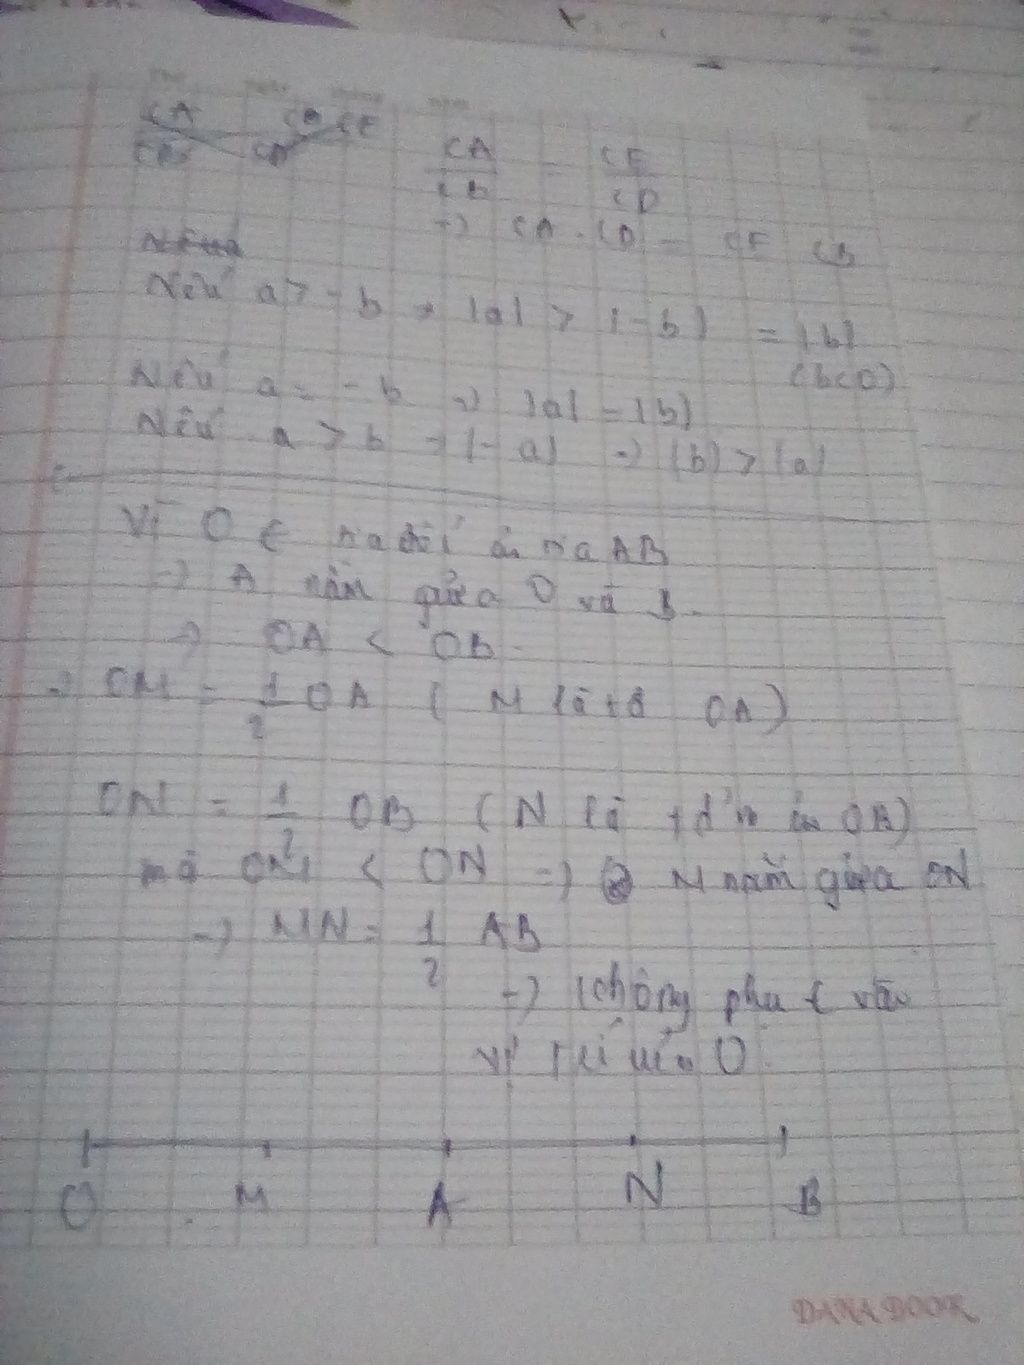 CA CE
CD
CA = CE
CB CD
=> CA . CD = CE CB
Nếu a > - b => |a| > |-b| = |b|
(b<0)
Nếu a = - b => |a| = |b|
Nếu a > b => |-a| => |b| > |a|
Vì O ∈ tia đối của tia AB
=> A nằm giữa O và B.
=> OA < OB.
=> OM = 1/2 OA ( M là tđ OA )
ON = 1/2 OB ( N là tđ'm của OB )
mà OM < ON => M nằm giữa ON
=> MN = 1/2 AB
=> không phụ t vào
vị trí của O.
O M A N B
DANABOOK